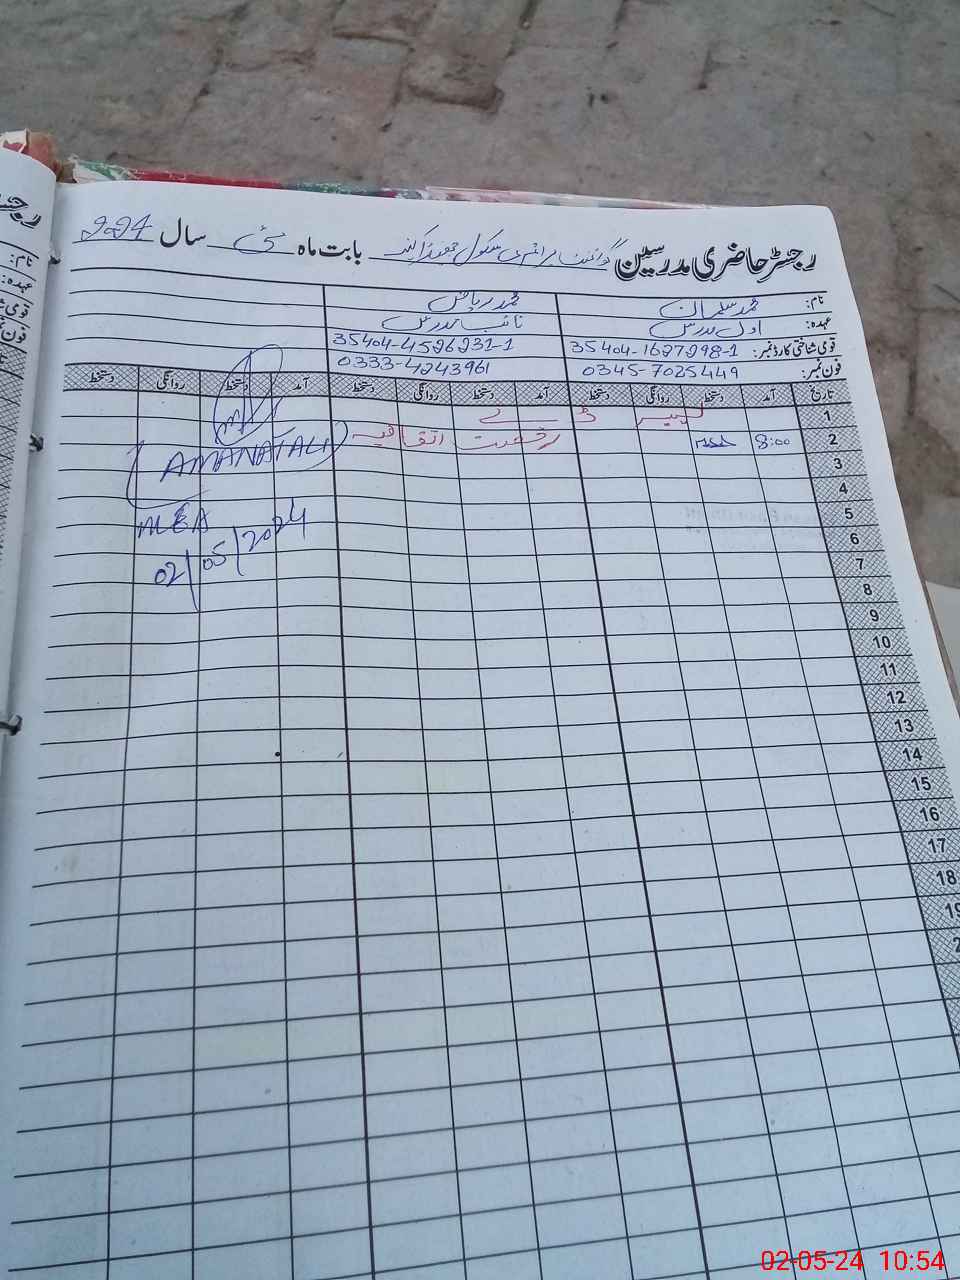 رجسٹر حاضری مدرسین گورنمنٹ پرائمری سکول بابت ماہ مئی سال 2024
نام: محمد سلمان محمد ریاض
عہدہ: اول مدرس نائب مدرس
قومی شناختی کارڈ نمبر: 35404-1627298-1 35404-4526231-1
فون نمبر: 0345-7025449 0333-4243961
تاریخ آمد دستخط روانگی دستخط آمد دستخط روانگی دستخط آمد دستخط روانگی دستخط
1 لیبر ڈے
2 8:00 رخصت اتفاقیہ
AMANAT ALI
3
4
5
MEA
6
02/05/2024
7
8
9
10
11
12
13
14
15
16
17
18
19
2
رجسٹر
نام:
عہدہ:
قومی شنا
فون نم
02-05-24 10:54